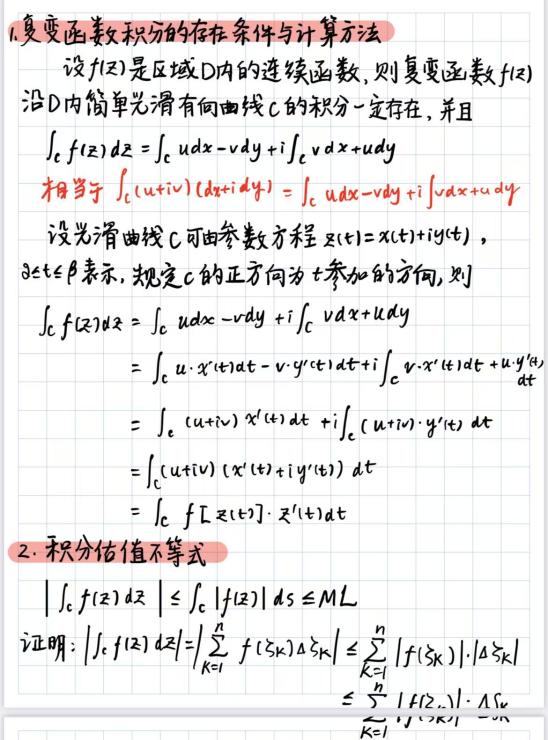 1.复变函数积分的存在条件与计算方法
设f(z)是区域D内的连续函数,则复变函数f(z)
沿D内简单光滑有向曲线C的积分一定存在,并且
∫c f(z)dz = ∫c udx-vdy+i∫c vdx+udy
相当于 ∫c(u+iv)(dx+idy) = ∫c udx-vdy+i∫vdx+udy
设光滑曲线C可由参数方程 z(t)=x(t)+iy(t),
α≤t≤β表示,规定C的正方向为t参加的方向,则
∫c f(z)dz = ∫c udx-vdy+i∫c vdx+udy
= ∫c u·x'(t)dt - v·y'(t)dt+i∫c v·x'(t)dt+u·y'(t)dt
= ∫c (u+iv)x'(t)dt +i∫c(u+iv)·y'(t)dt
= ∫c(u+iv)(x'(t)+iy'(t))dt
= ∫c f[z(t)]·z'(t)dt
2.积分估值不等式
|∫c f(z)dz| ≤ ∫c |f(z)|ds ≤ ML
证明:|∫c f(z)dz|=|∑_{K=1}^{n} f(ζK)ΔζK| ≤ ∑_{K=1}^{n} |f(ζK)|·|ΔζK|
≤ ∑_{K=1}^{n}